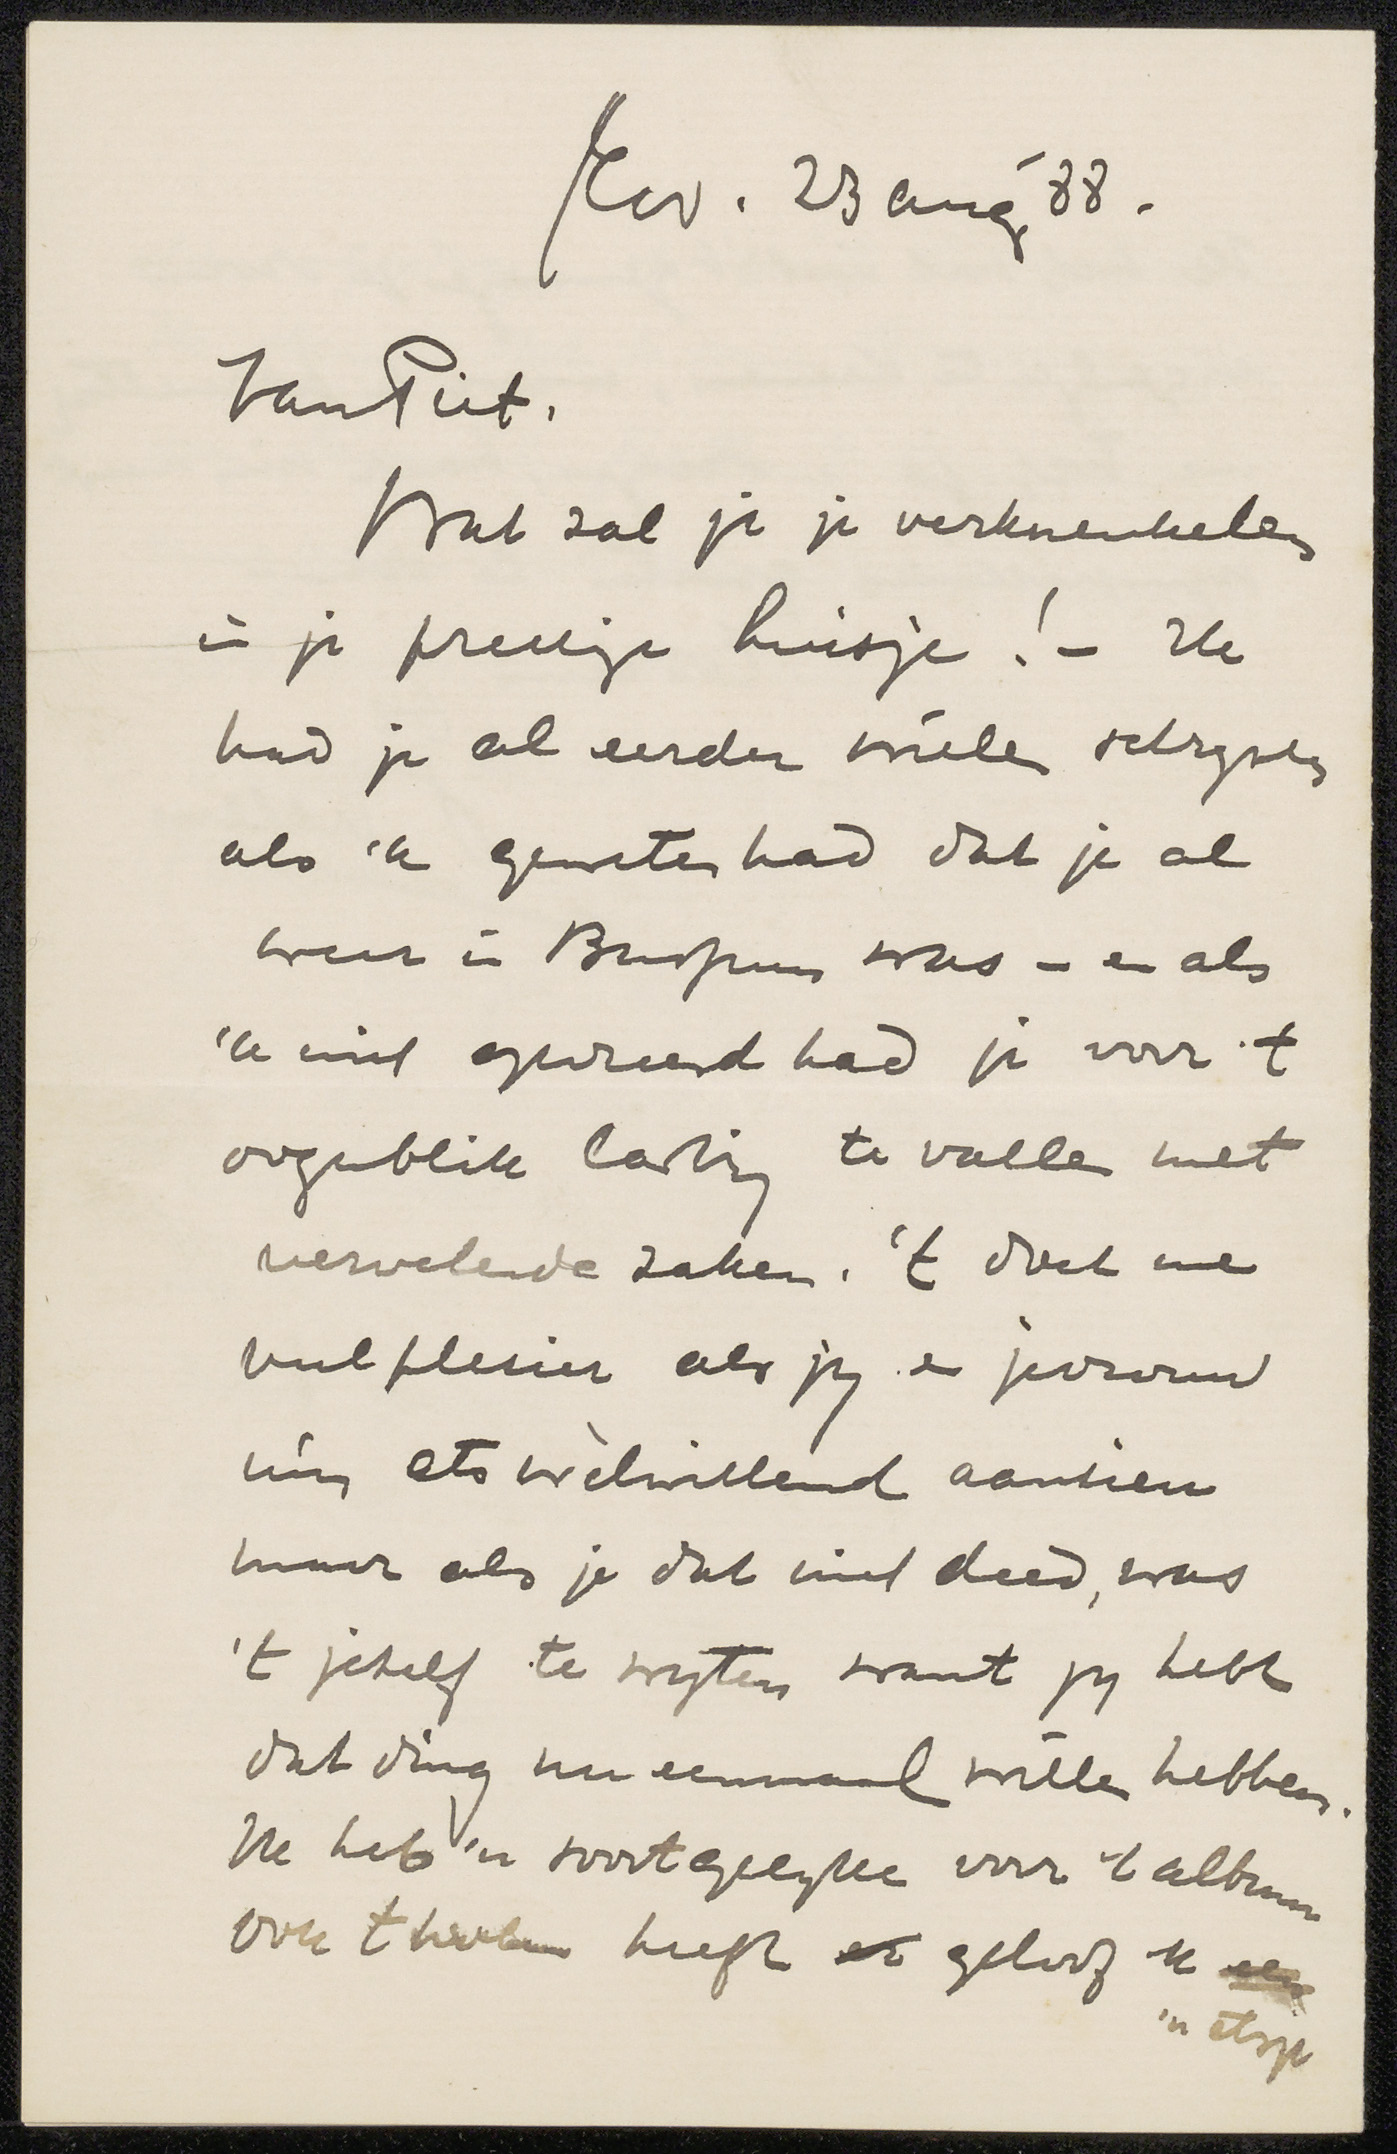 23 aug '88.
Van Piet.
Wat zal je je verkneukelen
in je prettige huisje! – Ik
had je al eerder willen schryven
als 'k geweten had dat je al
weer in Bussum was – en als
'k niet gevreesd had je voor 't
oogenblik lastig te vallen met
vervelende zaken. 't doet me
veel plesier als jy en je vrouw
myn ets welwillend aanzien
maar als je dat niet deed, was
't jezelf te wyten want jy hebt
dat ding nu eenmaal willen hebben.
Ik heb 'n soortgelyke voor 't album
ook heeft geloof 'k
'n etsje